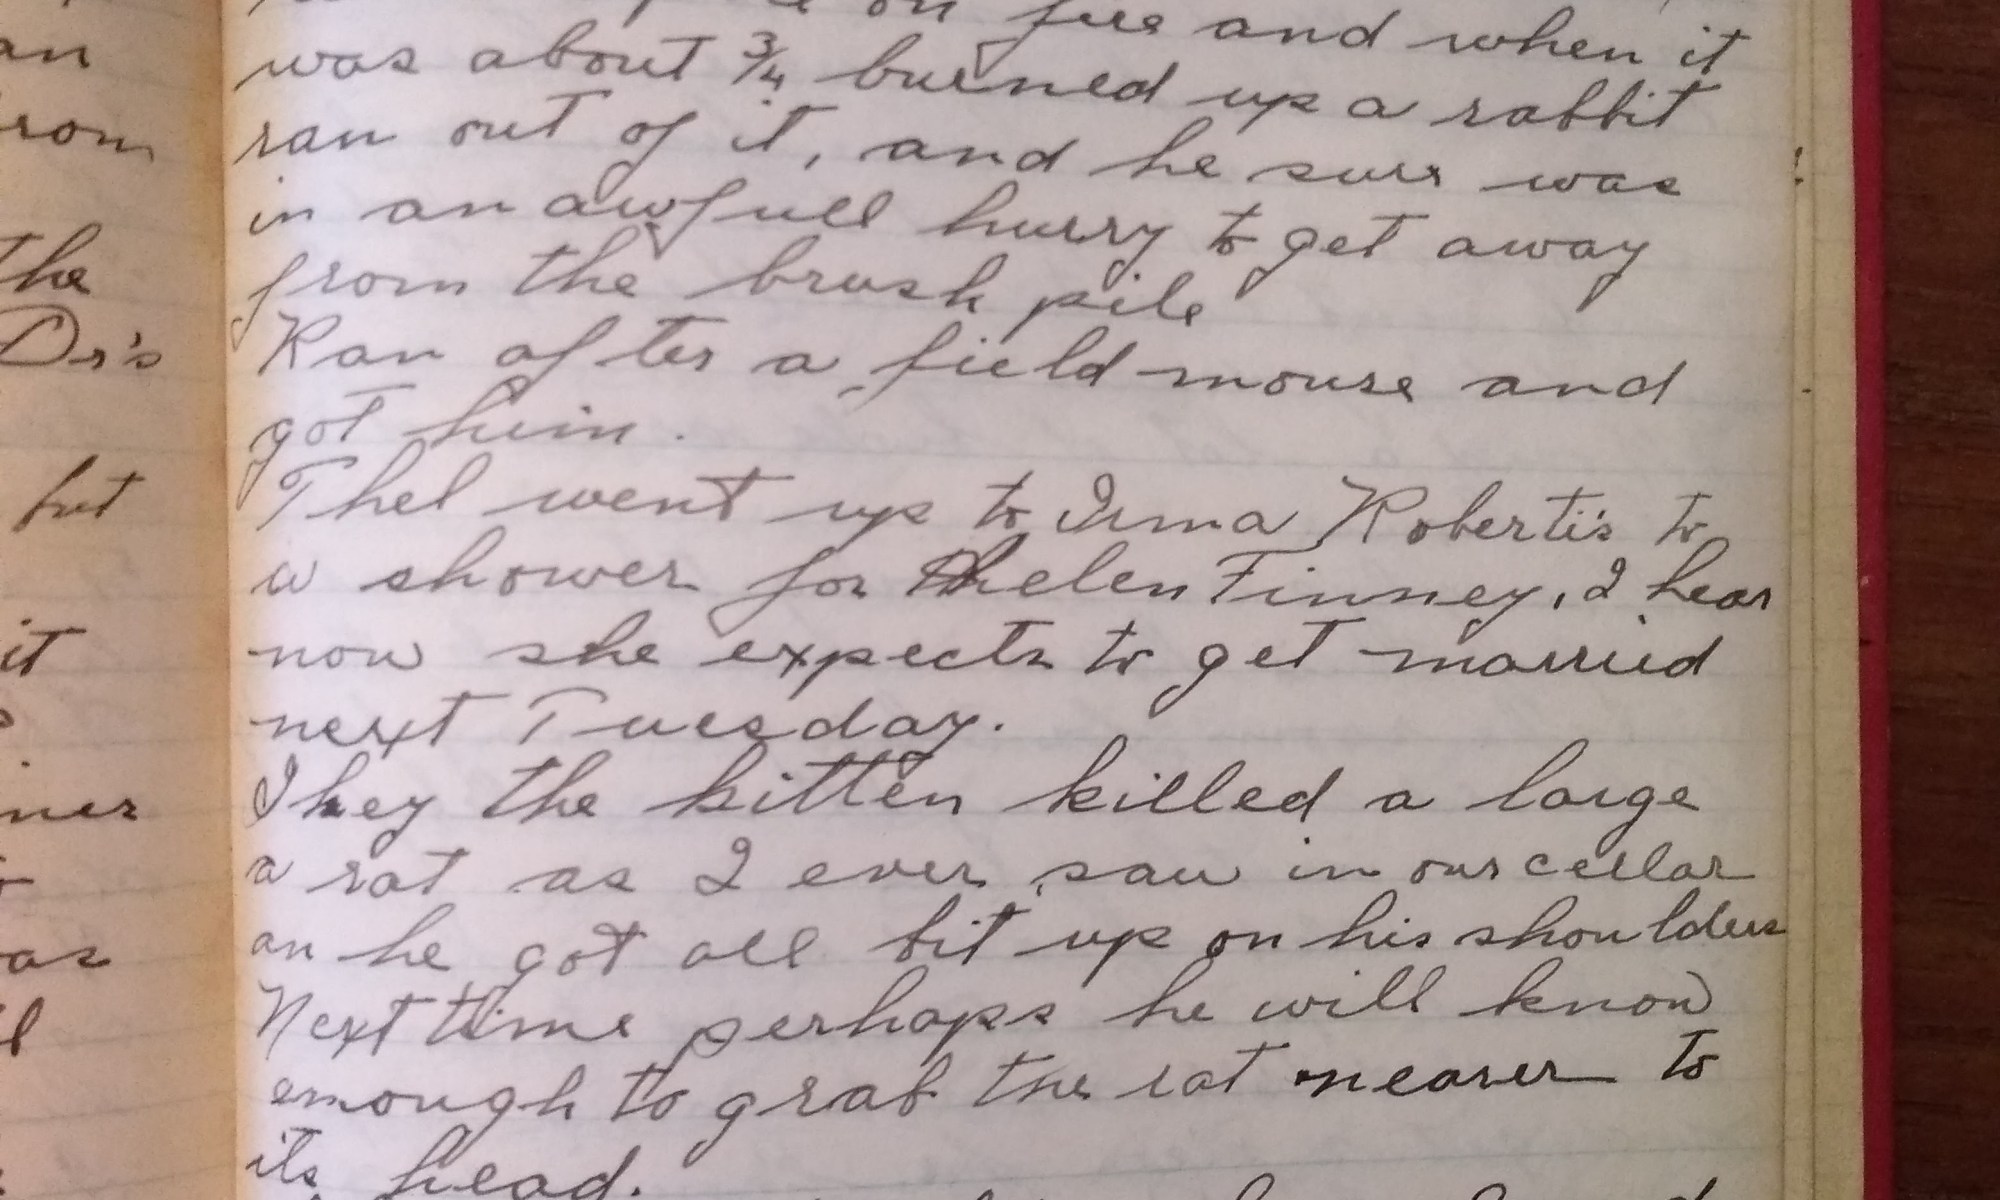 an
the
Dr's
but
it
on fire and when it
was about 3/4 burned up a rabbit
ran out of it, and he sure was
in an awfull hurry to get away
from the brush pile
Ran after a field mouse and
got him.
Thel went up to Irma Roberti's to
a shower for Helen Finney, I hear
now she expects to get married
next Tuesday.
Ikey the kitten killed a large
a rat as I ever saw in our cellar
an he got all bit up on his shoulders
Next time perhaps he will know
enough to grab the rat nearer to
its head.